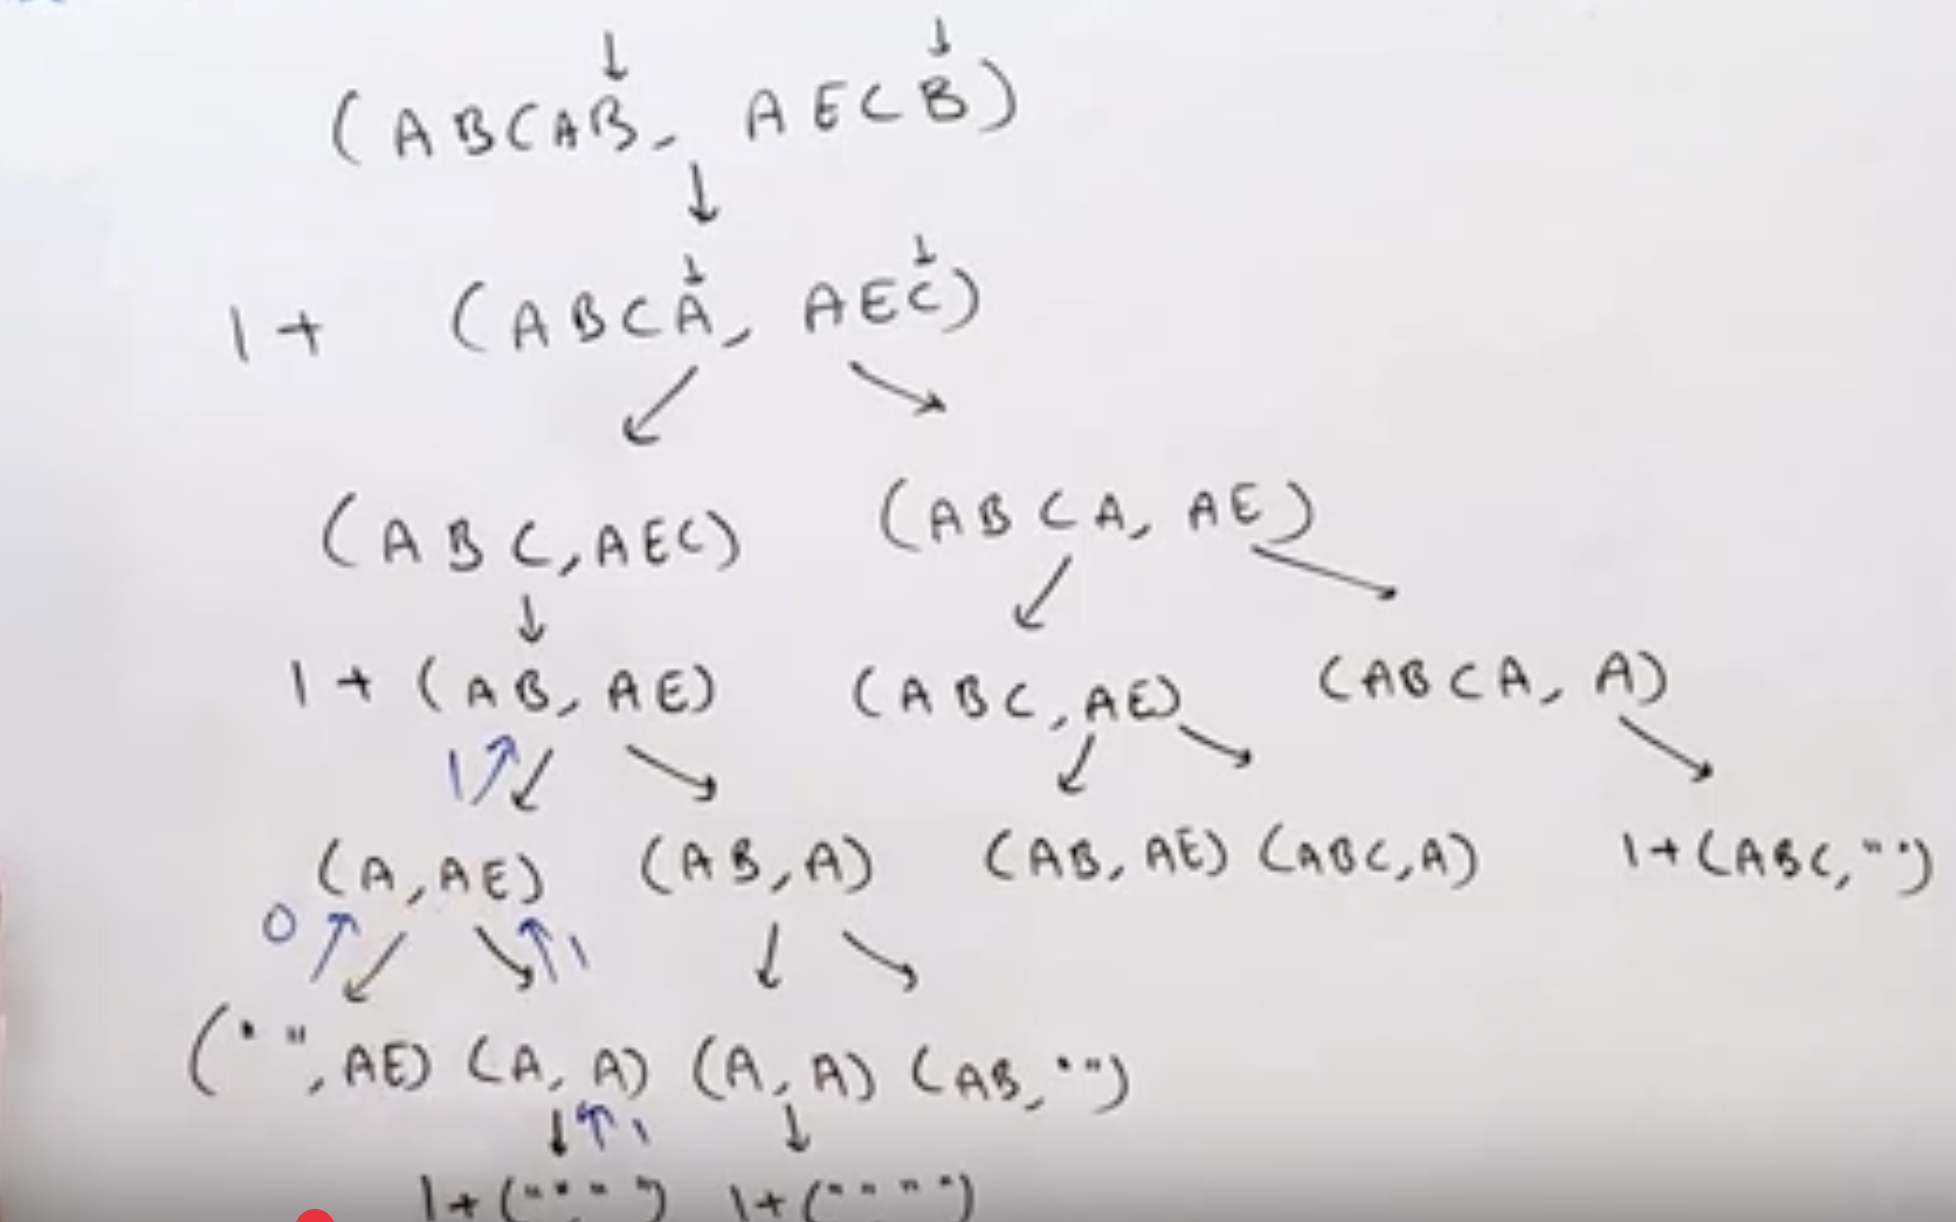 (ABCAB, AECB)
1+ (ABCA, AEC)
(ABC, AEC) (ABCA, AE)
1+ (AB, AE) (ABC, AE) (ABCA, A)
1
(A, AE) (AB, A) (AB, AE) (ABC, A) 1+(ABC, "")
0 1
("", AE) (A, A) (A, A) (AB, "")
1
1+("","") 1+("","")